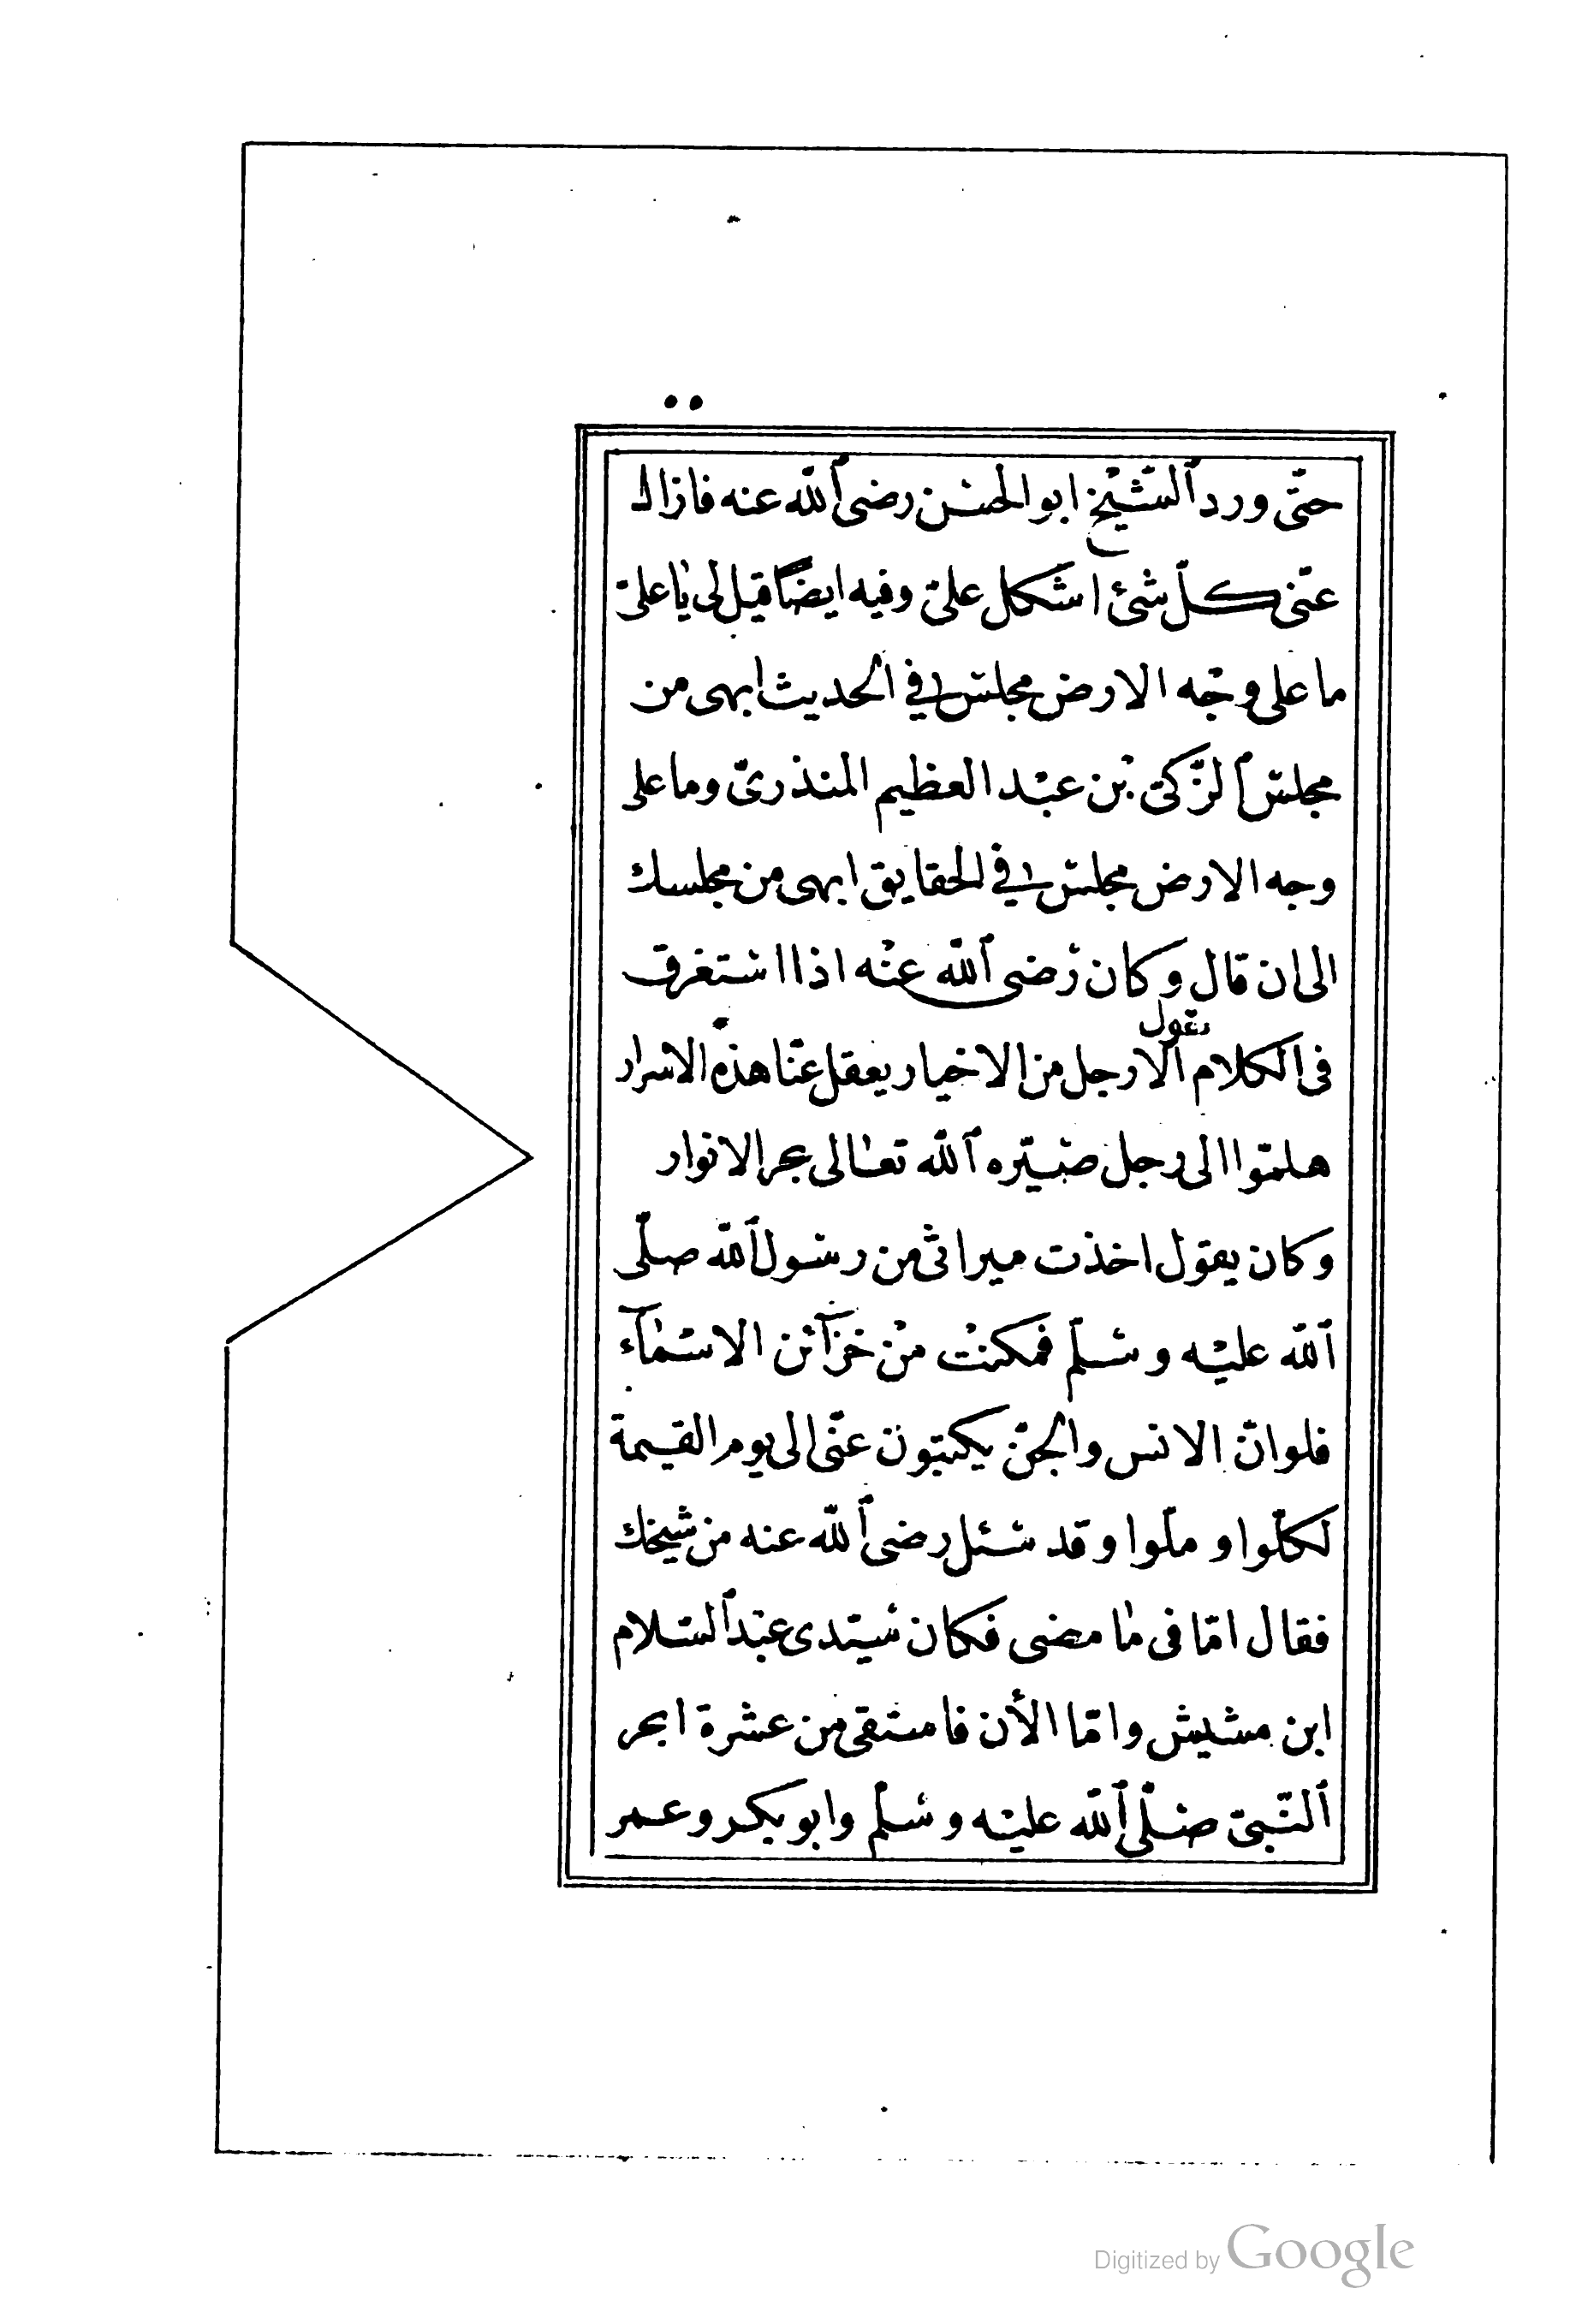 حتّى ورد الشّيخ ابوالحسن رضى الله عنه فازال
عنّى كلّ شئ اشكل علىّ وفيه ايضًا قيل لى يا علىّ
ما على وجه الارض مجلس فى الحديث ابهى من
مجلس الزّكىّ بن عبد العظيم المنذرىّ وما على
وجه الارض مجلس فى الحقايق ابهى من مجلسك
الى ان قال وكان رضى الله عنه اذا استغرق
يقول
فى الكلام الا رجل من الاخيار يعقل عنّا هذه الاسرار
هلمّوا الى رجل صيّره الله تعالى بحر الانوار
وكان يقول اخذت ميراثى من رسول الله صلّى
الله عليه وسلّم فمكنت من خزآئن الاسمآء
فلو انّ الانس والجنّ يكتبون عنّى الى يوم القيمة
لكلّوا و ملّوا وقد سئل رضى الله عنه من شيخك
فقال امّا فى ما مضى فكان سيّدى عبد السّلام
ابن مشيش وامّا الأن فاستقى من عشرة ابحر
النّبىّ صلّى الله عليه وسلّم وابو بكر وعمر
Digitized by Google